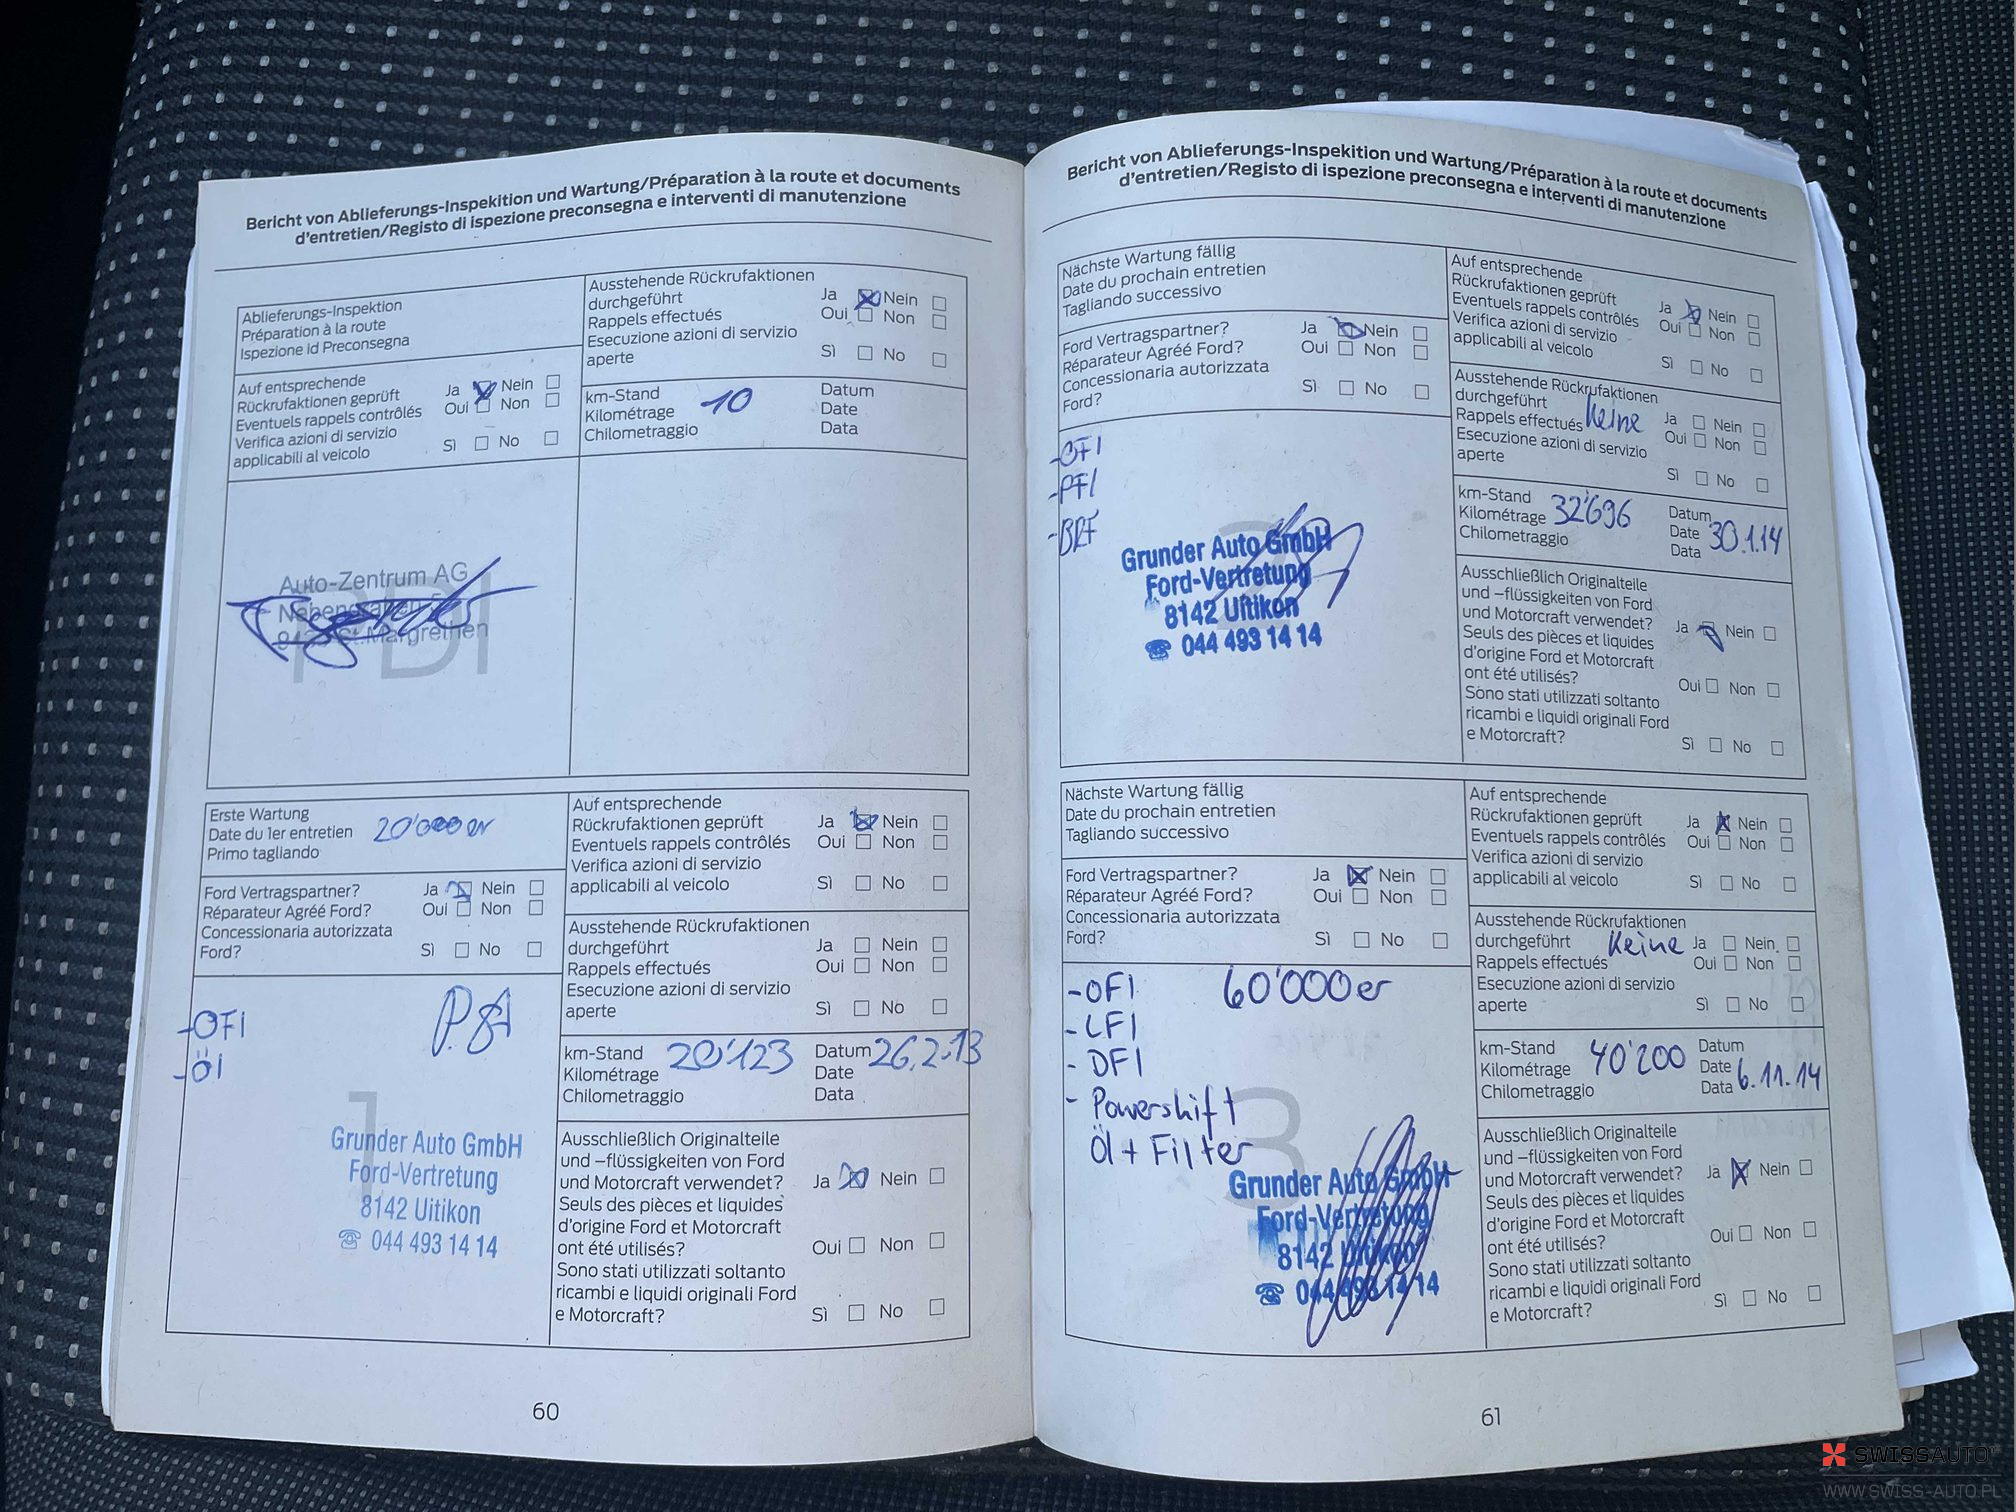 Bericht von Ablieferungs-Inspektion und Wartung/Préparation à la route et documents
d'entretien/Registo di ispezione preconsegna e interventi di manutenzione
Ablieferungs-Inspektion
Préparation à la route
Ispezione Id Preconsegna
Auf entsprechende
Rückrufaktionen geprüft
Eventuels rappels contrôlés
Verifica azioni di servizio
applicabili al veicolo
Ja Nein
Oui Non
Sì No
Ausstehende Rückrufaktionen
durchgeführt
Rappels effectués
Esecuzione azioni di servizio
aperte
Ja Nein
Oui Non
Sì No
km-Stand
Kilométrage 10
Chilometraggio
Datum
Date
Data
Auto-Zentrum AG
St.Margrethen
PDI
Erste Wartung
Date du 1er entretien 20'000er
Primo tagliando
Ford Vertragspartner?
Réparateur Agréé Ford?
Concessionaria autorizzata
Ford?
Ja Nein
Oui Non
Sì No
-OFI
-ÖI
1
Grunder Auto GmbH
Ford-Vertretung
8142 Uitikon
☎ 044 493 14 14
Auf entsprechende
Rückrufaktionen geprüft
Eventuels rappels contrôlés
Verifica azioni di servizio
applicabili al veicolo
Ja Nein
Oui Non
Sì No
Ausstehende Rückrufaktionen
durchgeführt
Rappels effectués
Esecuzione azioni di servizio
aperte
Ja Nein
Oui Non
Sì No
km-Stand
Kilométrage 20'123
Chilometraggio
Datum 26.2.13
Date
Data
Ausschließlich Originalteile
und –flüssigkeiten von Ford
und Motorcraft verwendet?
Seuls des pièces et liquides
d'origine Ford et Motorcraft
ont été utilisés?
Sono stati utilizzati soltanto
ricambi e liquidi originali Ford
e Motorcraft?
Ja Nein
Oui Non
Sì No
60
Bericht von Ablieferungs-Inspektion und Wartung/Préparation à la route et documents
d'entretien/Registo di ispezione preconsegna e interventi di manutenzione
Nächste Wartung fällig
Date du prochain entretien
Tagliando successivo
Ford Vertragspartner?
Réparateur Agréé Ford?
Concessionaria autorizzata
Ford?
Ja Nein
Oui Non
Sì No
-OFI
-PFI
-BRF
Grunder Auto GmbH
Ford-Vertretung
8142 Uitikon
☎ 044 493 14 14
Auf entsprechende
Rückrufaktionen geprüft
Eventuels rappels contrôlés
Verifica azioni di servizio
applicabili al veicolo
Ja Nein
Oui Non
Sì No
Ausstehende Rückrufaktionen
durchgeführt Keine
Rappels effectués
Esecuzione azioni di servizio
aperte
Ja Nein
Oui Non
Sì No
km-Stand
Kilométrage 32'696
Chilometraggio
Datum
Date 30.1.14
Data
Ausschließlich Originalteile
und –flüssigkeiten von Ford
und Motorcraft verwendet?
Seuls des pièces et liquides
d'origine Ford et Motorcraft
ont été utilisés?
Sono stati utilizzati soltanto
ricambi e liquidi originali Ford
e Motorcraft?
Ja Nein
Oui Non
Sì No
Nächste Wartung fällig
Date du prochain entretien
Tagliando successivo
Ford Vertragspartner?
Réparateur Agréé Ford?
Concessionaria autorizzata
Ford?
Ja Nein
Oui Non
Sì No
-OFI 60'000er
-LFI
-DFI
-Powershift
Öl + Filter
3
Grunder Auto GmbH
Ford-Vertretung
8142 Uitikon
☎ 044 493 14 14
Auf entsprechende
Rückrufaktionen geprüft
Eventuels rappels contrôlés
Verifica azioni di servizio
applicabili al veicolo
Ja Nein
Oui Non
Sì No
Ausstehende Rückrufaktionen
durchgeführt Keine
Rappels effectués
Esecuzione azioni di servizio
aperte
Ja Nein
Oui Non
Sì No
km-Stand
Kilométrage 40'200
Chilometraggio
Datum
Date
Data 6.11.14
Ausschließlich Originalteile
und –flüssigkeiten von Ford
und Motorcraft verwendet?
Seuls des pièces et liquides
d'origine Ford et Motorcraft
ont été utilisés?
Sono stati utilizzati soltanto
ricambi e liquidi originali Ford
e Motorcraft?
Ja Nein
Oui Non
Sì No
61
SWISSAUTO
WWW.SWISS-AUTO.PL